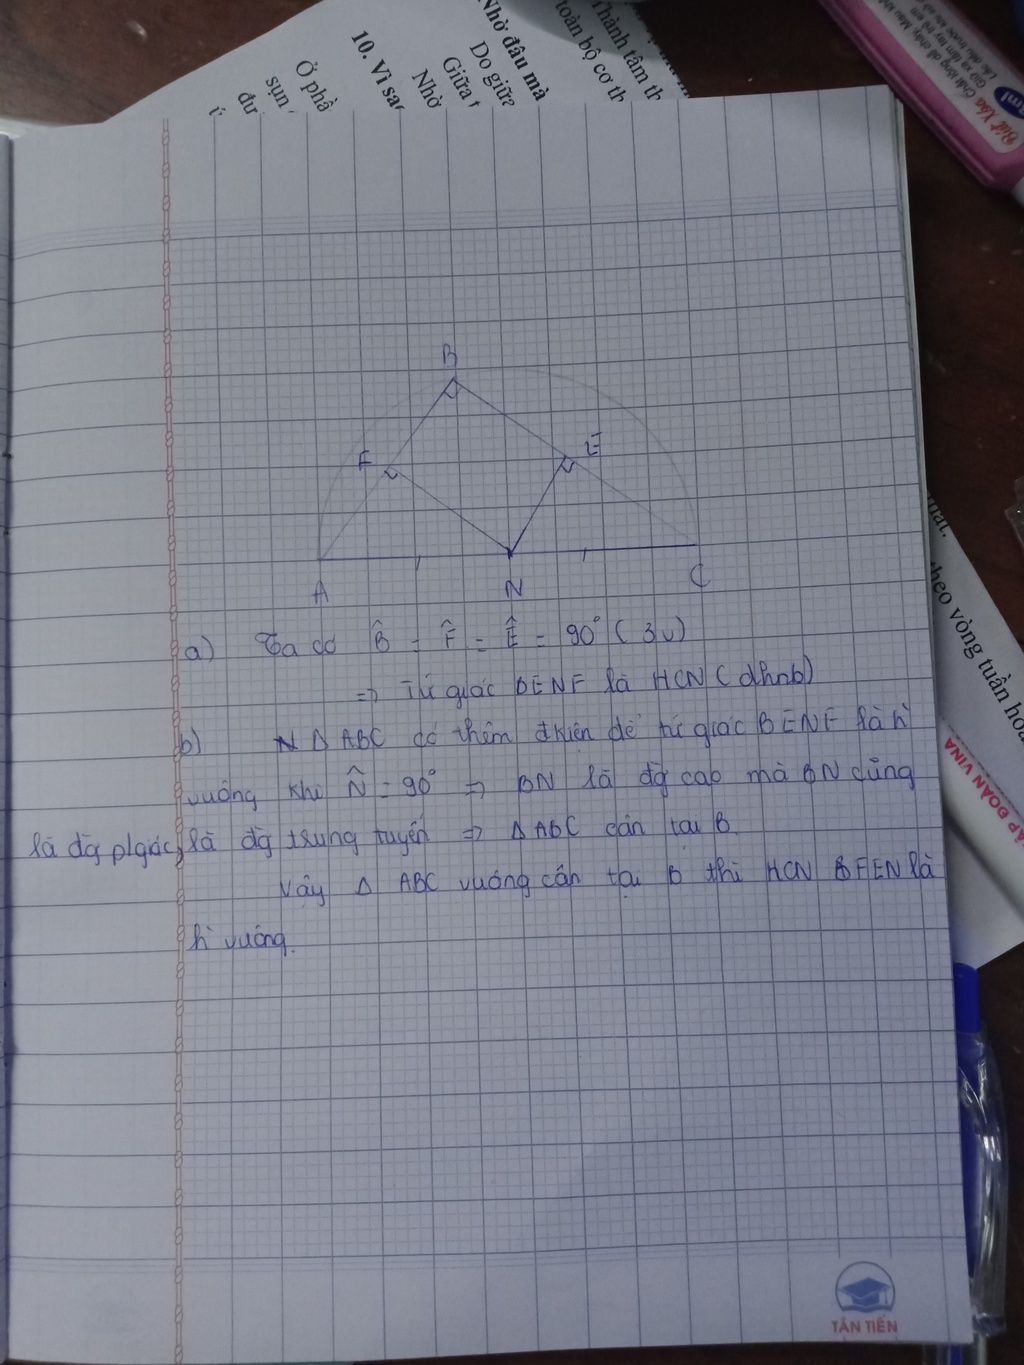 Thành tâm th
toàn bộ cơ th
Nhờ đâu mà
Do giữa
Giữa t
Nhờ
10. Vì sao
Ở phầ
sụn
đư
Bút Xóa
B
F
E
A
N
C
a) Ta có B̂ = F̂ = Ê = 90° (3v)
=> Tứ giác BENF là HCN (dhnb)
b) Δ ABC có thêm đkiện để tứ giác BENF là h`
vuông khi N̂ = 90° => BN là đg cao mà BN cũng
là đg pgiác, là đg trung tuyến => Δ ABC cân tại B.
Vậy Δ ABC vuông cân tại B thì HCN BFEN là
h` vuông.
theo vòng tuần hoà
TẬP ĐOÀN VINA
TÂN TIẾN